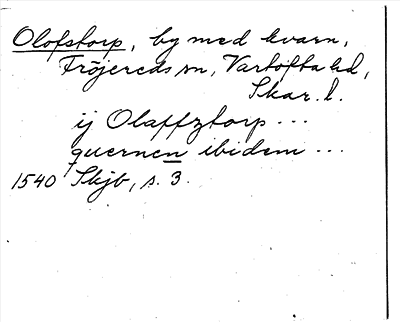 Olofstorp, by med kvarn,
Fröjereds sn, Vartofta hd,
Skar. l.
ij Olaffztorp ...
quernen ibidem ...
1540 Skjb, s. 3.